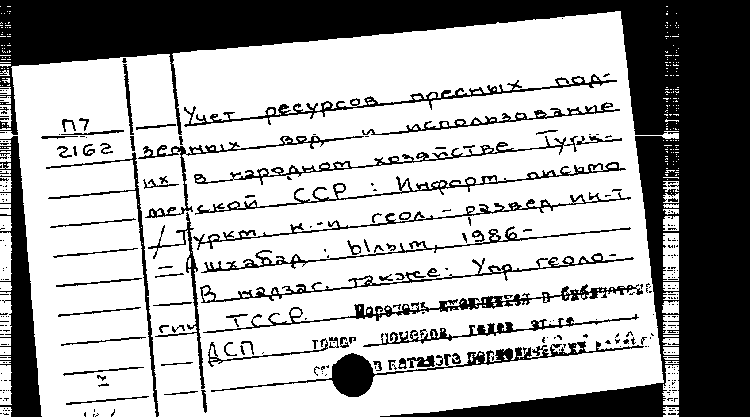 П7
2162
Учет ресурсов пресных под-
земных вод и использование
их в народном хозяйстве Турк-
менской ССР : Информ. письмо
/ Туркм. н.-и. геол.-развед ин-т
- Ашхабад : Ылым, 1986-
В надзаг. также: Упр. геоло-
гии ТССР. Перечень имеющихся в библиотеке
ДСП. томов, номеров, годов этого
в каталоге периодических